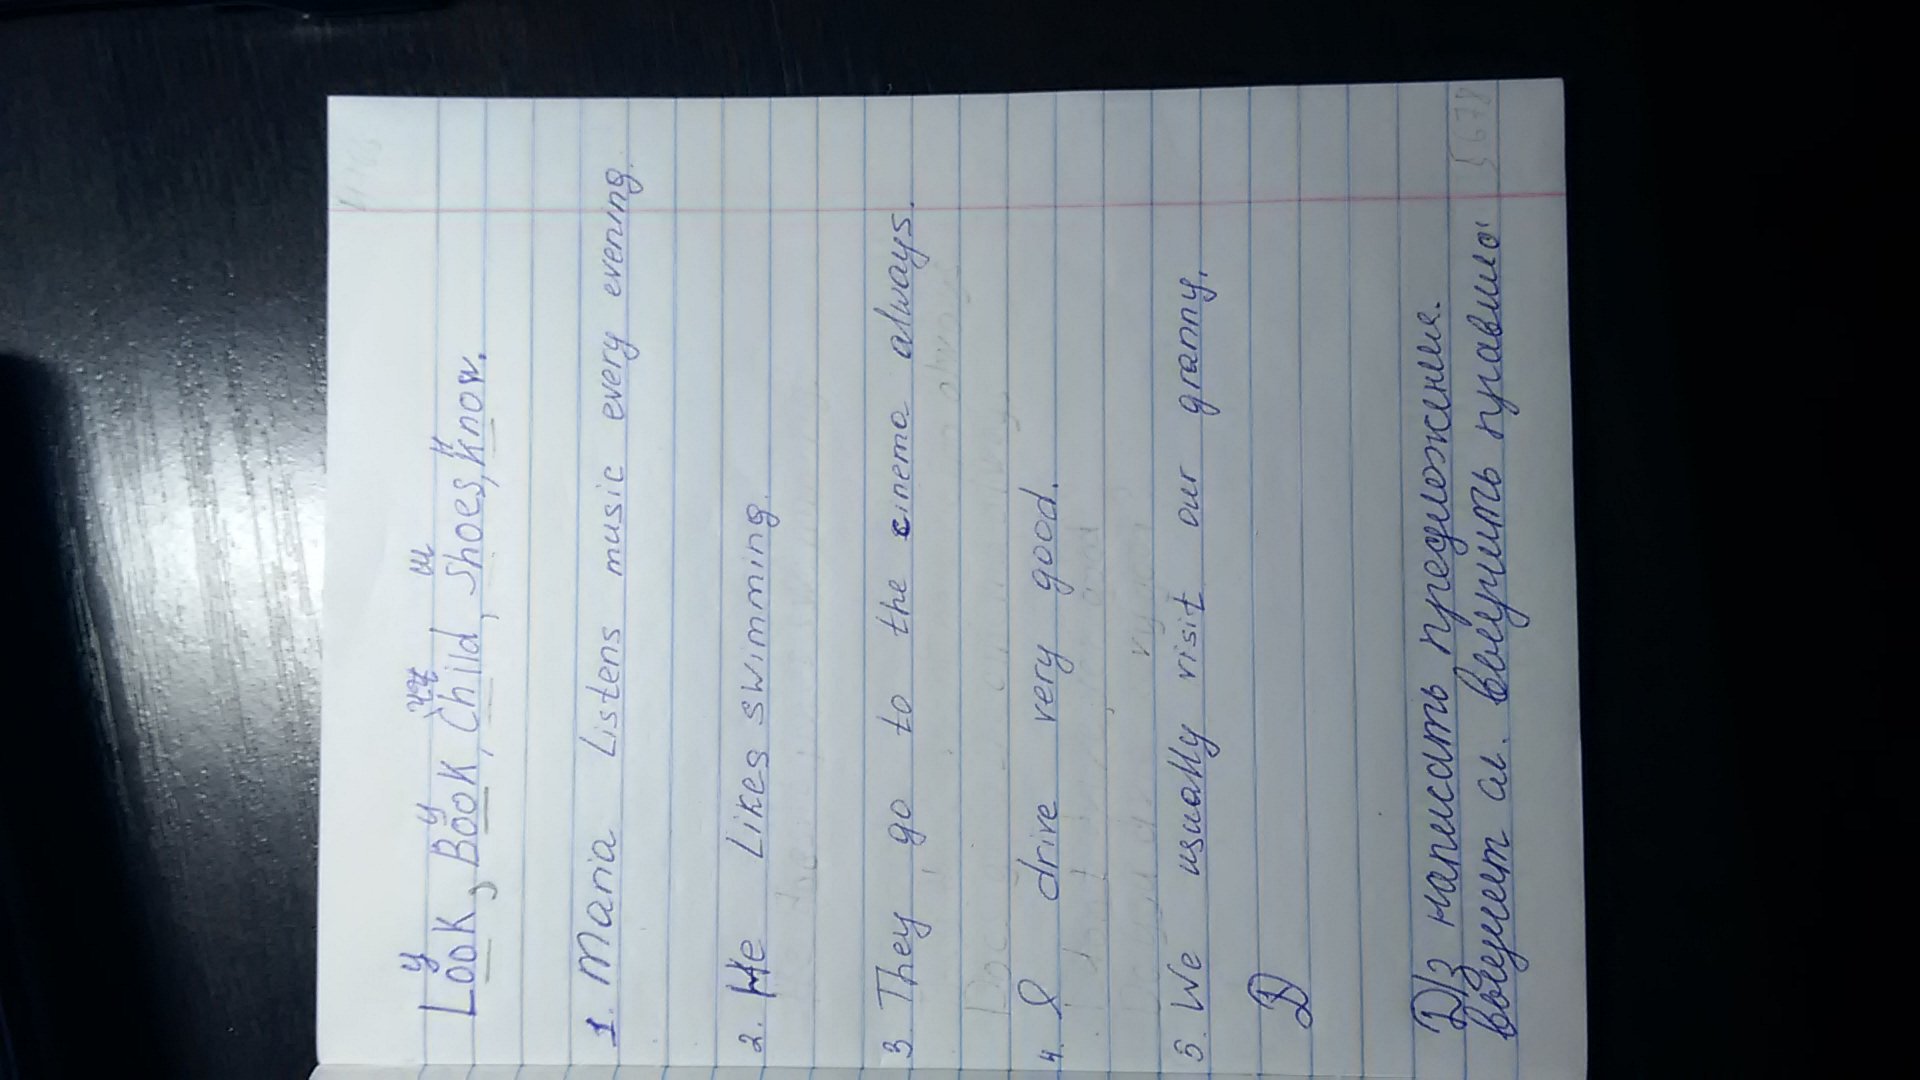 у у ч й ш н
Look, Book, Child, Shoes, Know.
1. Maria Listens music every evening.
2. He Likes swimming.
3. They go to the cinema always.
4. I drive very good.
5. We usually visit our granny.
Д
Д/з написать предложение.
выучить правило